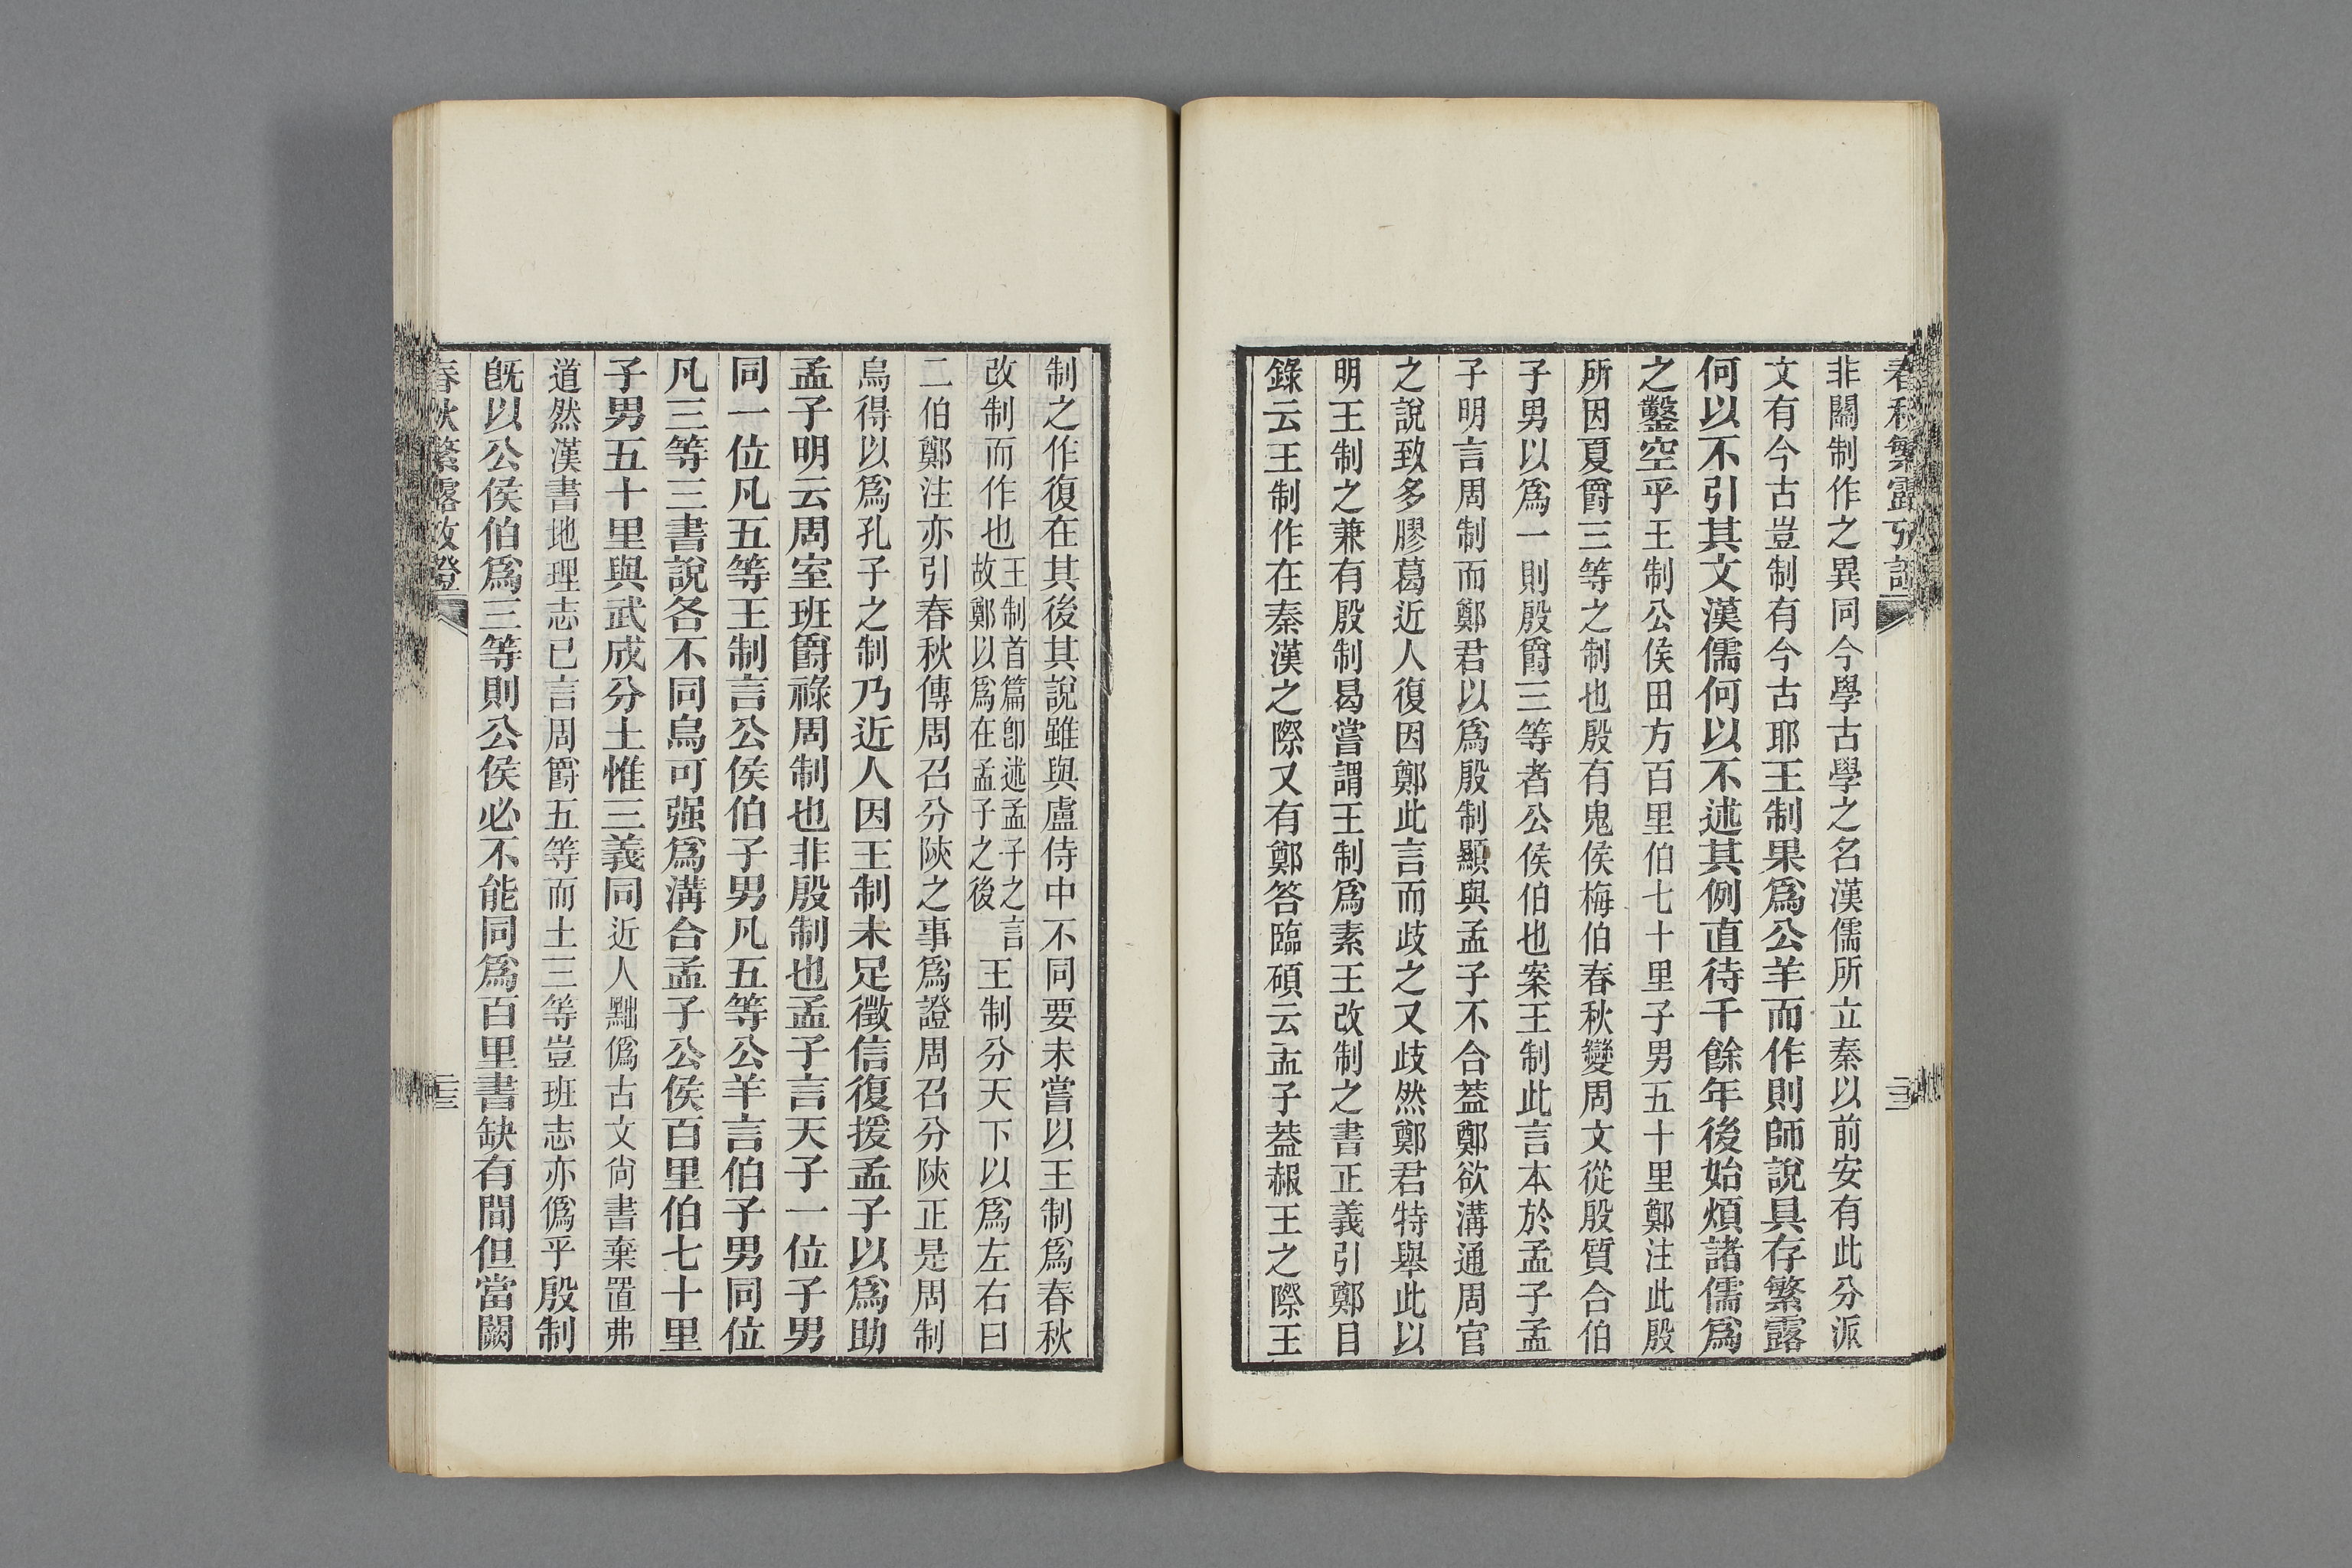 春秋繁露攷證
二三
非關制作之異同今學古學之名漢儒所立秦以前安有此分派
文有今古豈制有今古耶王制果爲公羊而作則師說具存繁露
何以不引其文漢儒何以不述其例直待千餘年後始煩諸儒爲
之鑿空乎王制公侯田方百里伯七十里子男五十里鄭注此殷
所因夏爵三等之制也殷有鬼侯梅伯春秋變周文從殷質合伯
子男以爲一則殷爵三等者公侯伯也案王制此言本於孟子孟
子明言周制而鄭君以爲殷制顯與孟子不合葢鄭欲溝通周官
之說致多膠葛近人復因鄭此言而歧之又歧然鄭君特舉此以
明王制之兼有殷制曷嘗謂王制爲素王改制之書正義引鄭目
錄云王制作在秦漢之際又有鄭答臨碩云孟子葢赧王之際王
制之作復在其後其說雖與盧侍中不同要未嘗以王制爲春秋
改制而作也王制首篇卽述孟子之言故鄭以爲在孟子之後王制分天下以爲左右曰
二伯鄭注亦引春秋傳周召分陝之事爲證周召分陝正是周制
烏得以爲孔子之制乃近人因王制未足徵信復援孟子以爲助
孟子明云周室班爵祿周制也非殷制也孟子言天子一位子男
同一位凡五等王制言公侯伯子男凡五等公羊言伯子男同位
凡三等三書說各不同烏可强爲溝合孟子公侯百里伯七十里
子男五十里與武成分土惟三義同近人黜僞古文尙書棄置弗
道然漢書地理志已言周爵五等而土三等豈班志亦僞乎殷制
旣以公侯伯爲三等則公侯必不能同爲百里書缺有間但當闕
春秋繁露攷證
二三